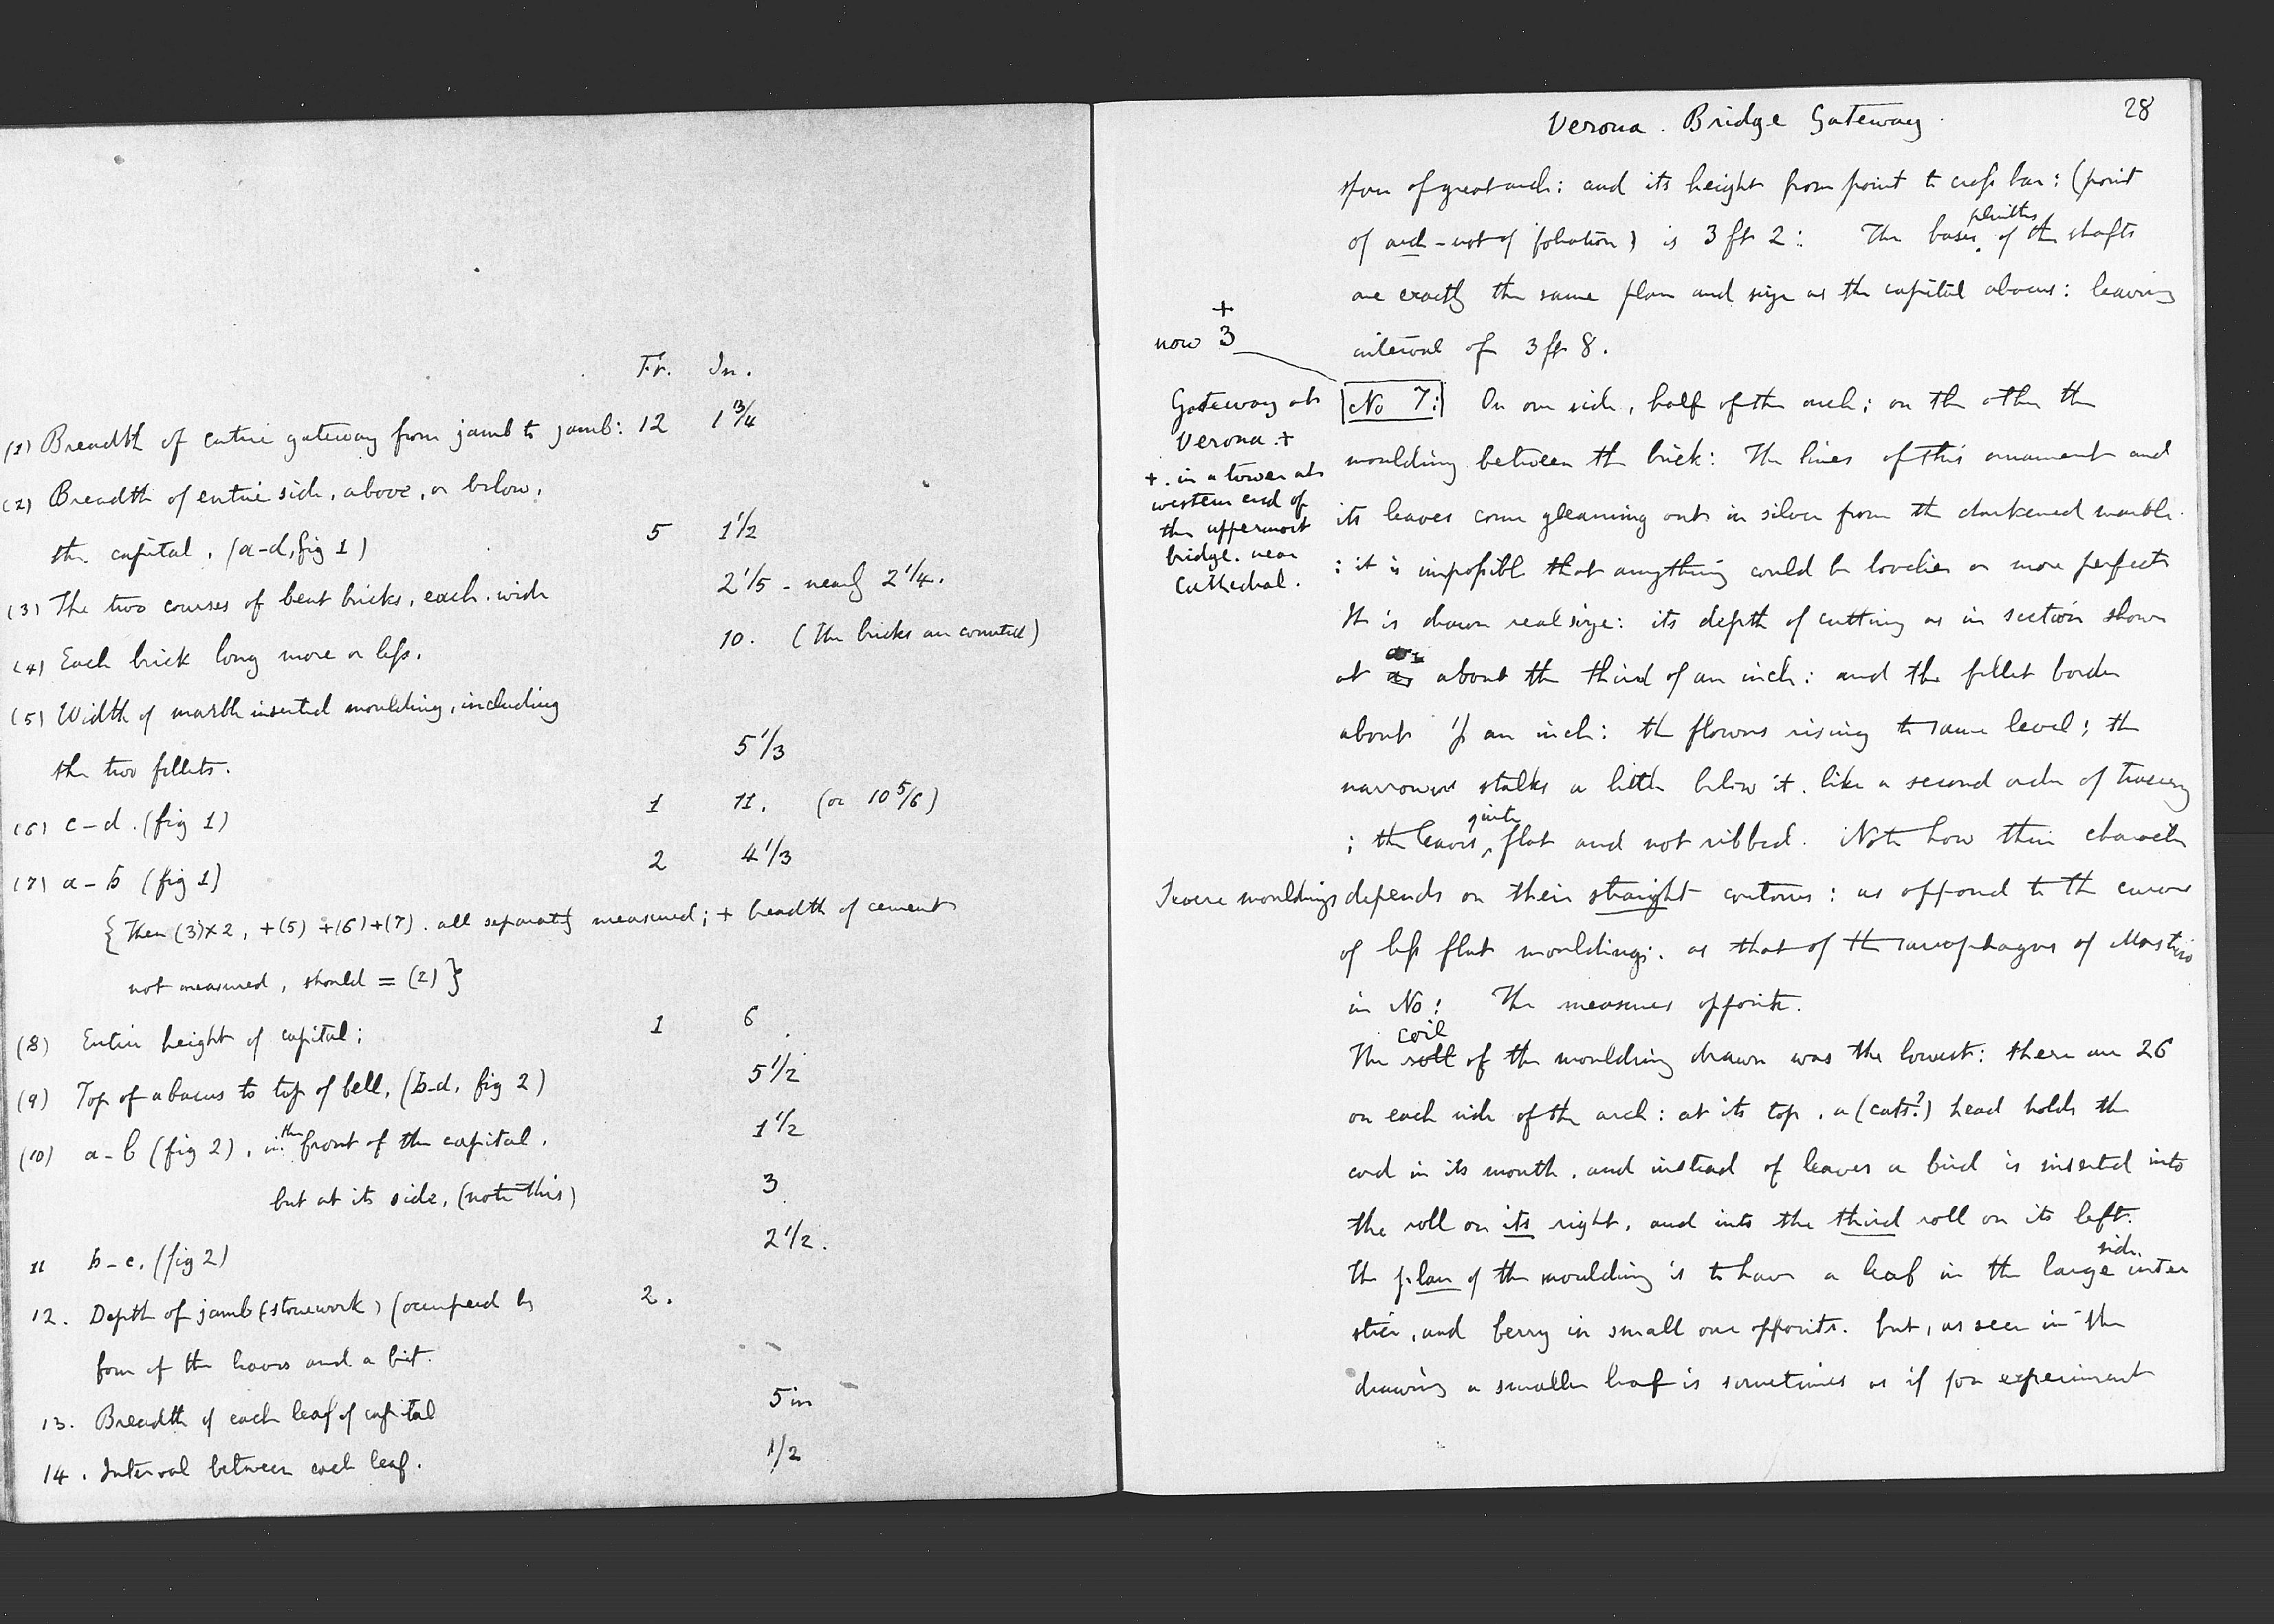 Ft. In.
(1) Breadth of entire gateway from jamb to jamb: 12 1 3/4
(2) Breadth of entire side, above, or below,
the capital, (a-d, fig 1) 5 1 1/2
(3) The two courses of beat bricks, each wide 2 1/5 - nearly 2 1/4.
(4) Each brick long more or less. 10. (the bricks are counted)
(5) Width of marble inserted moulding, including
the two fillets. 5 1/3
(6) c-d. (fig 1) 1 11. (or 10 5/6)
(7) a-b (fig 1) 2 4 1/3
{Then (3)x2, +(5) +(6)+(7). all separately measured; + breadth of cement
not measured, should = (2)}
(8) Entire height of capital; 1 6
(9) Top of abacus to top of bell, (b-d, fig 2) 5 1/2
(10) a-b (fig 2), in the front of the capital, 1 1/2
but at its side, (note this) 3
11 b-c. (fig 2) 2 1/2.
12. Depth of jamb (stonework) (occupied by 2.
four of the leaves and a bit.
13. Breadth of each leaf of capital 5 in
14. Interval between each leaf. 1/2
Verona. Bridge Gateway. 28
span of great arch: and its height from point to cross bar: (point
of arch - not of foliation) is 3 ft 2: The bases plinths of the shafts
are exactly the same plan and size as the capital abacus: leaving
interval of 3 ft 8.
+
now 3
Gateway at
Verona.+
+. in a tower at
western end of
the uppermost
bridge. near
Cathedral.
No 7: On one side, half of the arch; on the other the
moulding between the brick: The lines of this ornament and
its leaves come gleaming out in silver from the darkened marble.
: it is impossible that anything could be lovelier or more perfect
It is drawn real size: its depth of cutting as in section shown
at about the third of an inch: and the fillet border
about an inch: the flowers rising to same level; the
narrower stalks a little below it. like a second order of tracery
; the leaves quite flat and not ribbed. Note how their character
Severe mouldings depends on their straight contours: as opposed to the curves
of less flat mouldings. as that of the sarcophagus of Mastino
in No: The measures opposite.
The roll coil of the moulding drawn was the lowest: there are 26
on each side of the arch: at its top, a (cats?) head holds the
cord in its mouth, and instead of leaves a bird is inserted into
the roll on its right, and into the third roll on its left.
The plan of the moulding is to have a leaf in the large side inter
stice, and berry in small one opposite. but, as seen in the
drawing a smaller leaf is sometimes as if for experiment